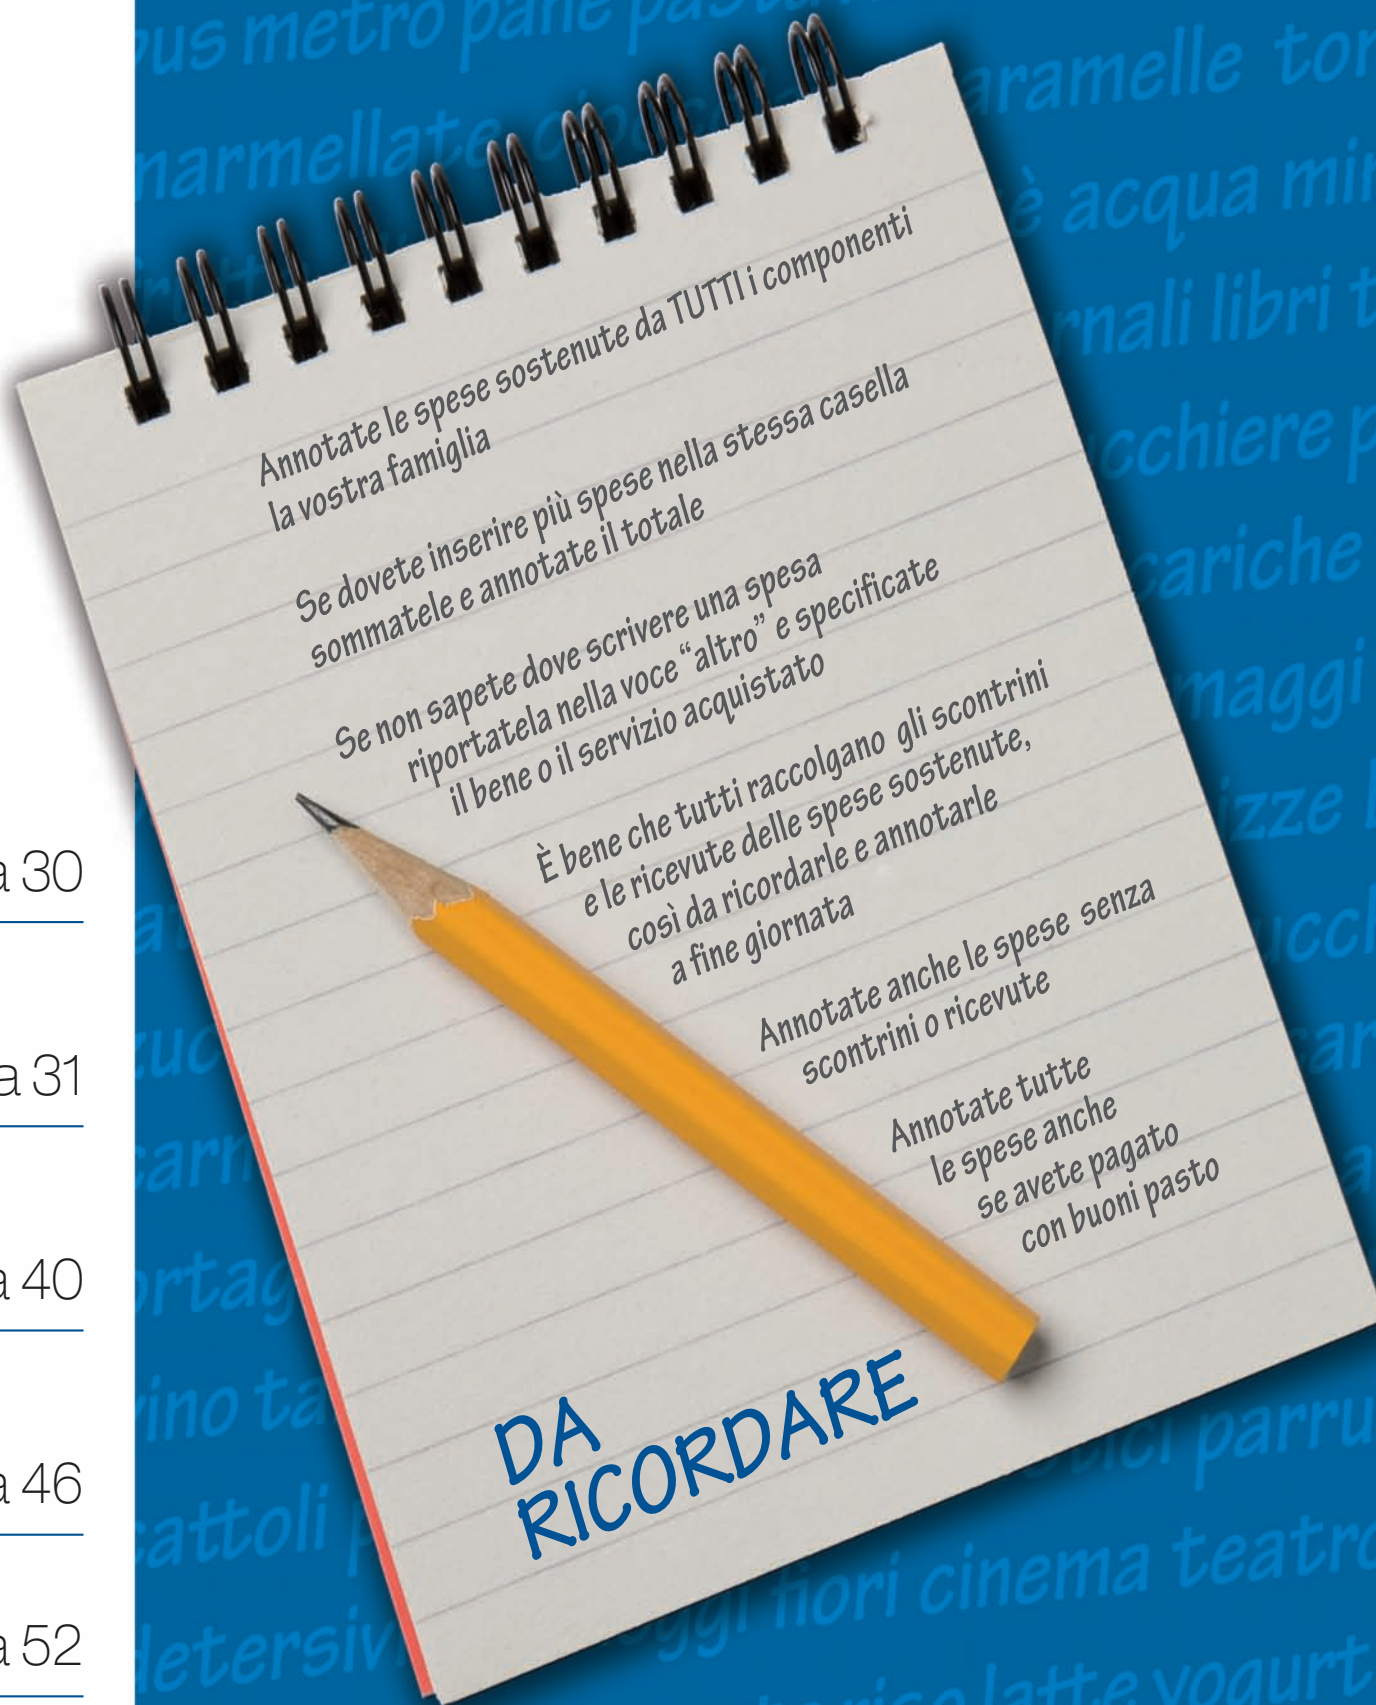 bus metro pane pasta
marmellate
caramelle
è acqua
libri
Annotate le spese sostenute da TUTTI i componenti
la vostra famiglia
Se dovete inserire più spese nella stessa casella
sommatele e annotate il totale
Se non sapete dove scrivere una spesa
riportatela nella voce “altro” e specificate
il bene o il servizio acquistato
È bene che tutti raccolgano gli scontrini
e le ricevute delle spese sostenute,
così da ricordarle e annotarle
a fine giornata
Annotate anche le spese senza
scontrini o ricevute
Annotate tutte
le spese anche
se avete pagato
con buoni pasto
DA
RICORDARE
a 30
a 31
a 40
a 46
a 52
vino
fiori cinema teatro
latte yogurt